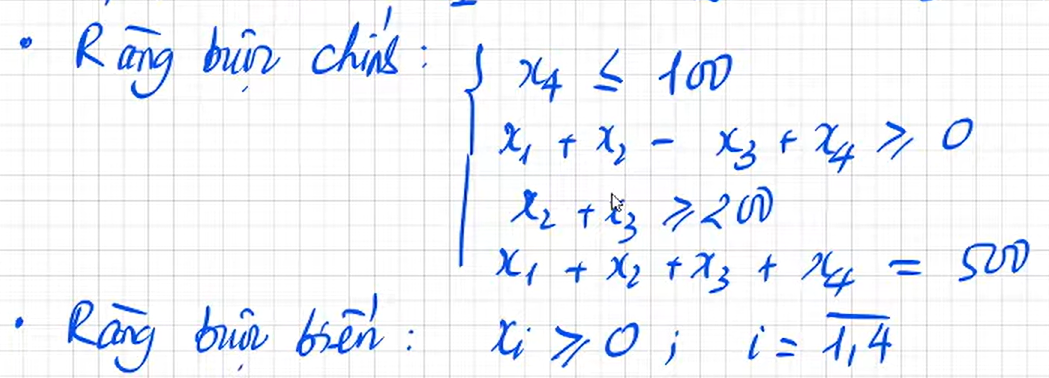 • Ràng buộc chính: { x₄ ≤ 100
x₁ + x₂ - x₃ + x₄ ≥ 0
x₂ + x₃ ≥ 200
x₁ + x₂ + x₃ + x₄ = 500
• Ràng buộc biến: xᵢ ≥ 0 ; i = \overline{1,4}